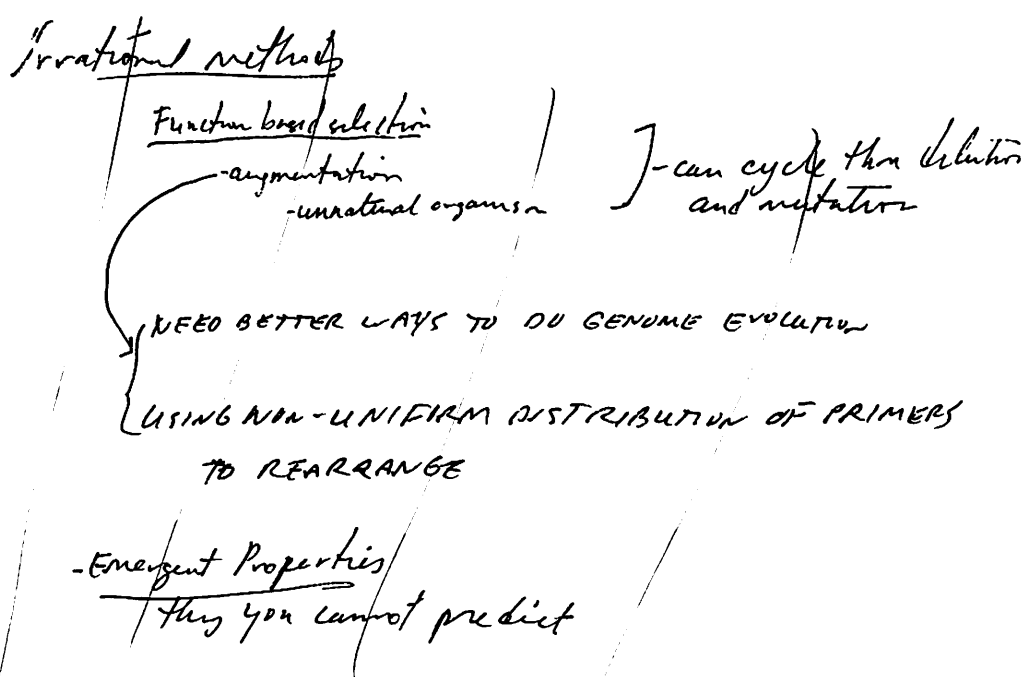 "Irrational methods
Function based selection
-augmentation
-unnatural organism
]-can cycle thru dilution
and mutation
NEED BETTER WAYS TO DO GENOME EVOLUTION
USING NON-UNIFIRM DISTRIBUTION OF PRIMERS
TO REARRANGE
-Emergent Properties
you cannot predict